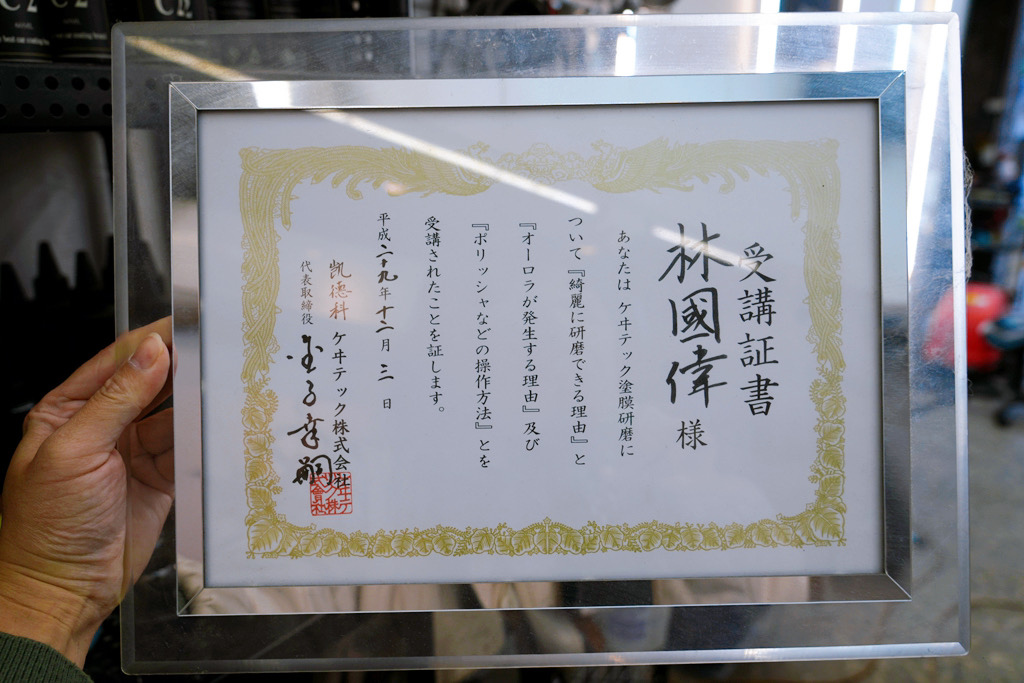 受講証書
林國偉 様
あなたは ケヰテック塗膜研磨に
ついて『綺麗に研磨できる理由』と
『オーロラが発生する理由』及び
『ポリッシャなどの操作方法』とを
受講されたことを証します。
平成二十九年十二月三日
凯德科 ケヰテック株式会社
代表取締役 金子幸嗣